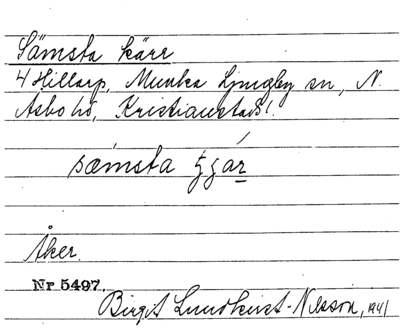 Sämsta kärr
4 Hillarp, Munka Ljungby sn, N.
Åsbo hd, Kristianstads l.
sæmsta ɕᶎár
Åker.
Nr 5497.
Birgit Lundkvist-Nilsson, 1941